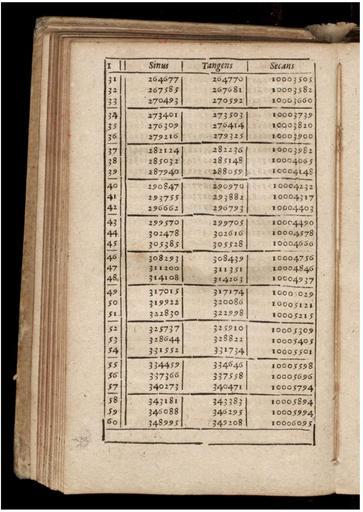 1 Sinus Tangens Secans
31 264677 264770 10003505
32 267585 267681 10003582
33 270493 270592 10003660
34 273401 273503 10003739
35 276309 276414 10003820
36 279216 279325 10003900
37 282124 282236 10003982
38 285032 285148 10004065
39 287940 288059 10004148
40 290847 290970 10004232
41 293755 293882 10004317
42 296662 296793 10004403
43 299570 299705 10004490
44 302478 302616 10004578
45 305385 305528 10004666
46 308293 308439 10004756
47 311200 311351 10004846
48 314108 314263 10004937
49 317015 317174 10005029
50 319922 320086 10005121
51 322830 322998 10005215
52 325737 325910 10005309
53 328644 328822 10005405
54 331552 331734 10005501
55 334459 334646 10005598
56 337366 337558 10005696
57 340273 340471 10005794
58 343181 343383 10005894
59 346088 346295 10005994
60 348995 349208 10006095